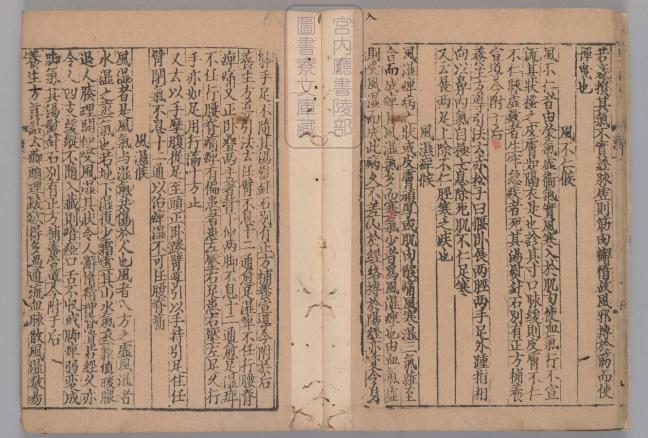 若衰損其氣不實發脉虛則筋肉懈惰故風邪搏於筋而使
揮曳也
風不仁候
風不仁者由榮氣虛衞氣實風寒入於肌肉使血氣行不宣
流其狀搔之皮膚如隔衣是也診其寸口脉緩則皮膚不仁
不仁脉虛數者生牢急疾者死其湯熨針石別有正方補養
宣導今附于后
養生方導引法云赤松子曰偃臥展兩脛兩手足外踵指相
向以鼻內氣自極七息除死肌不仁足寒
又云展兩足上除不仁脛寒之疾也
風濕痹候
風濕痹病之狀或皮膚頑厚或肌肉酸痛風寒濕三氣雜至
合而成痹其風濕氣多而寒氣少者爲風濕痹也由血氣虛
則受風濕而成此病久不差入於經絡搏於陽經亦變令身體
手足不隨其湯熨針石別有正方補養宣導今附于后
養生方導引法云任臂不息十二通愈足濕痹不任行腰脊
痹痛又正臥疊兩手著背下伸兩脚不息十二通愈足濕痹
不任行腰脊痛痹有偏患者患左壓右足患右壓左足久行
手亦如足用行滿十方止
又云以手摩腹從足至頭正臥踡臂導引以手持引足住任
臂閉氣不息十二通以治痹濕不可任腰脊痛
風濕候
風濕者是風氣與濕氣共傷於人也風者八方之虛風濕者
水濕之蒸氣也若地下濕復少霜雪其山水氣蒸兼值暖腿
退人腠理開便受風濕其狀令人懈惰精神昏憒若經久亦
令人四支緩縱不隨入藏則喑瘂口舌不收或脚痹弱變成
脚氣其湯熨針石別有正方補養宣導今附于后
養生方真誥云櫛頭理髮欲得多過通流血脉散風濕數易
宮內廳書陵部
圖書寮文庫藏